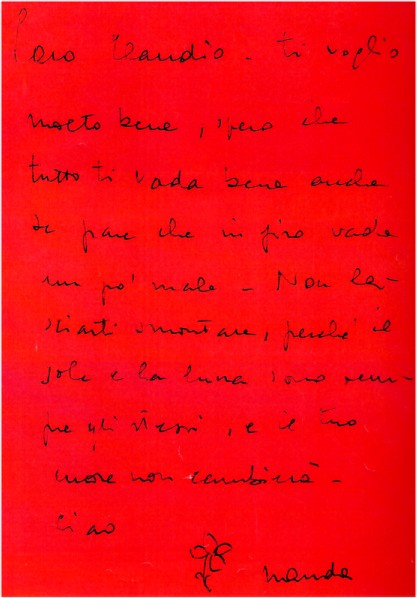 Caro Claudio - ti voglio
molto bene, spero che
tutto ti vada bene anche
se pare che in giro vada
un po' male - Non la-
sciarti smontare, perché il
sole e la luna sono sem-
pre gli stessi, e il tuo
cuore non cambierà -
ciao
Nanda